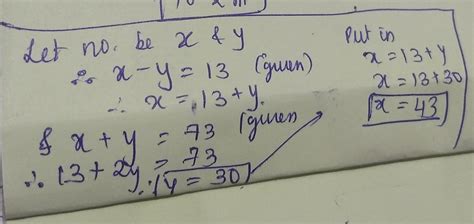 Let no. be x & y
∴ x - y = 13 (given)
∴ x = 13 + y.
& x + y = 73 (given
∴ 13 + 2y = 73
∴ y = 30
Put in
x = 13 + y
x = 13 + 30
x = 43